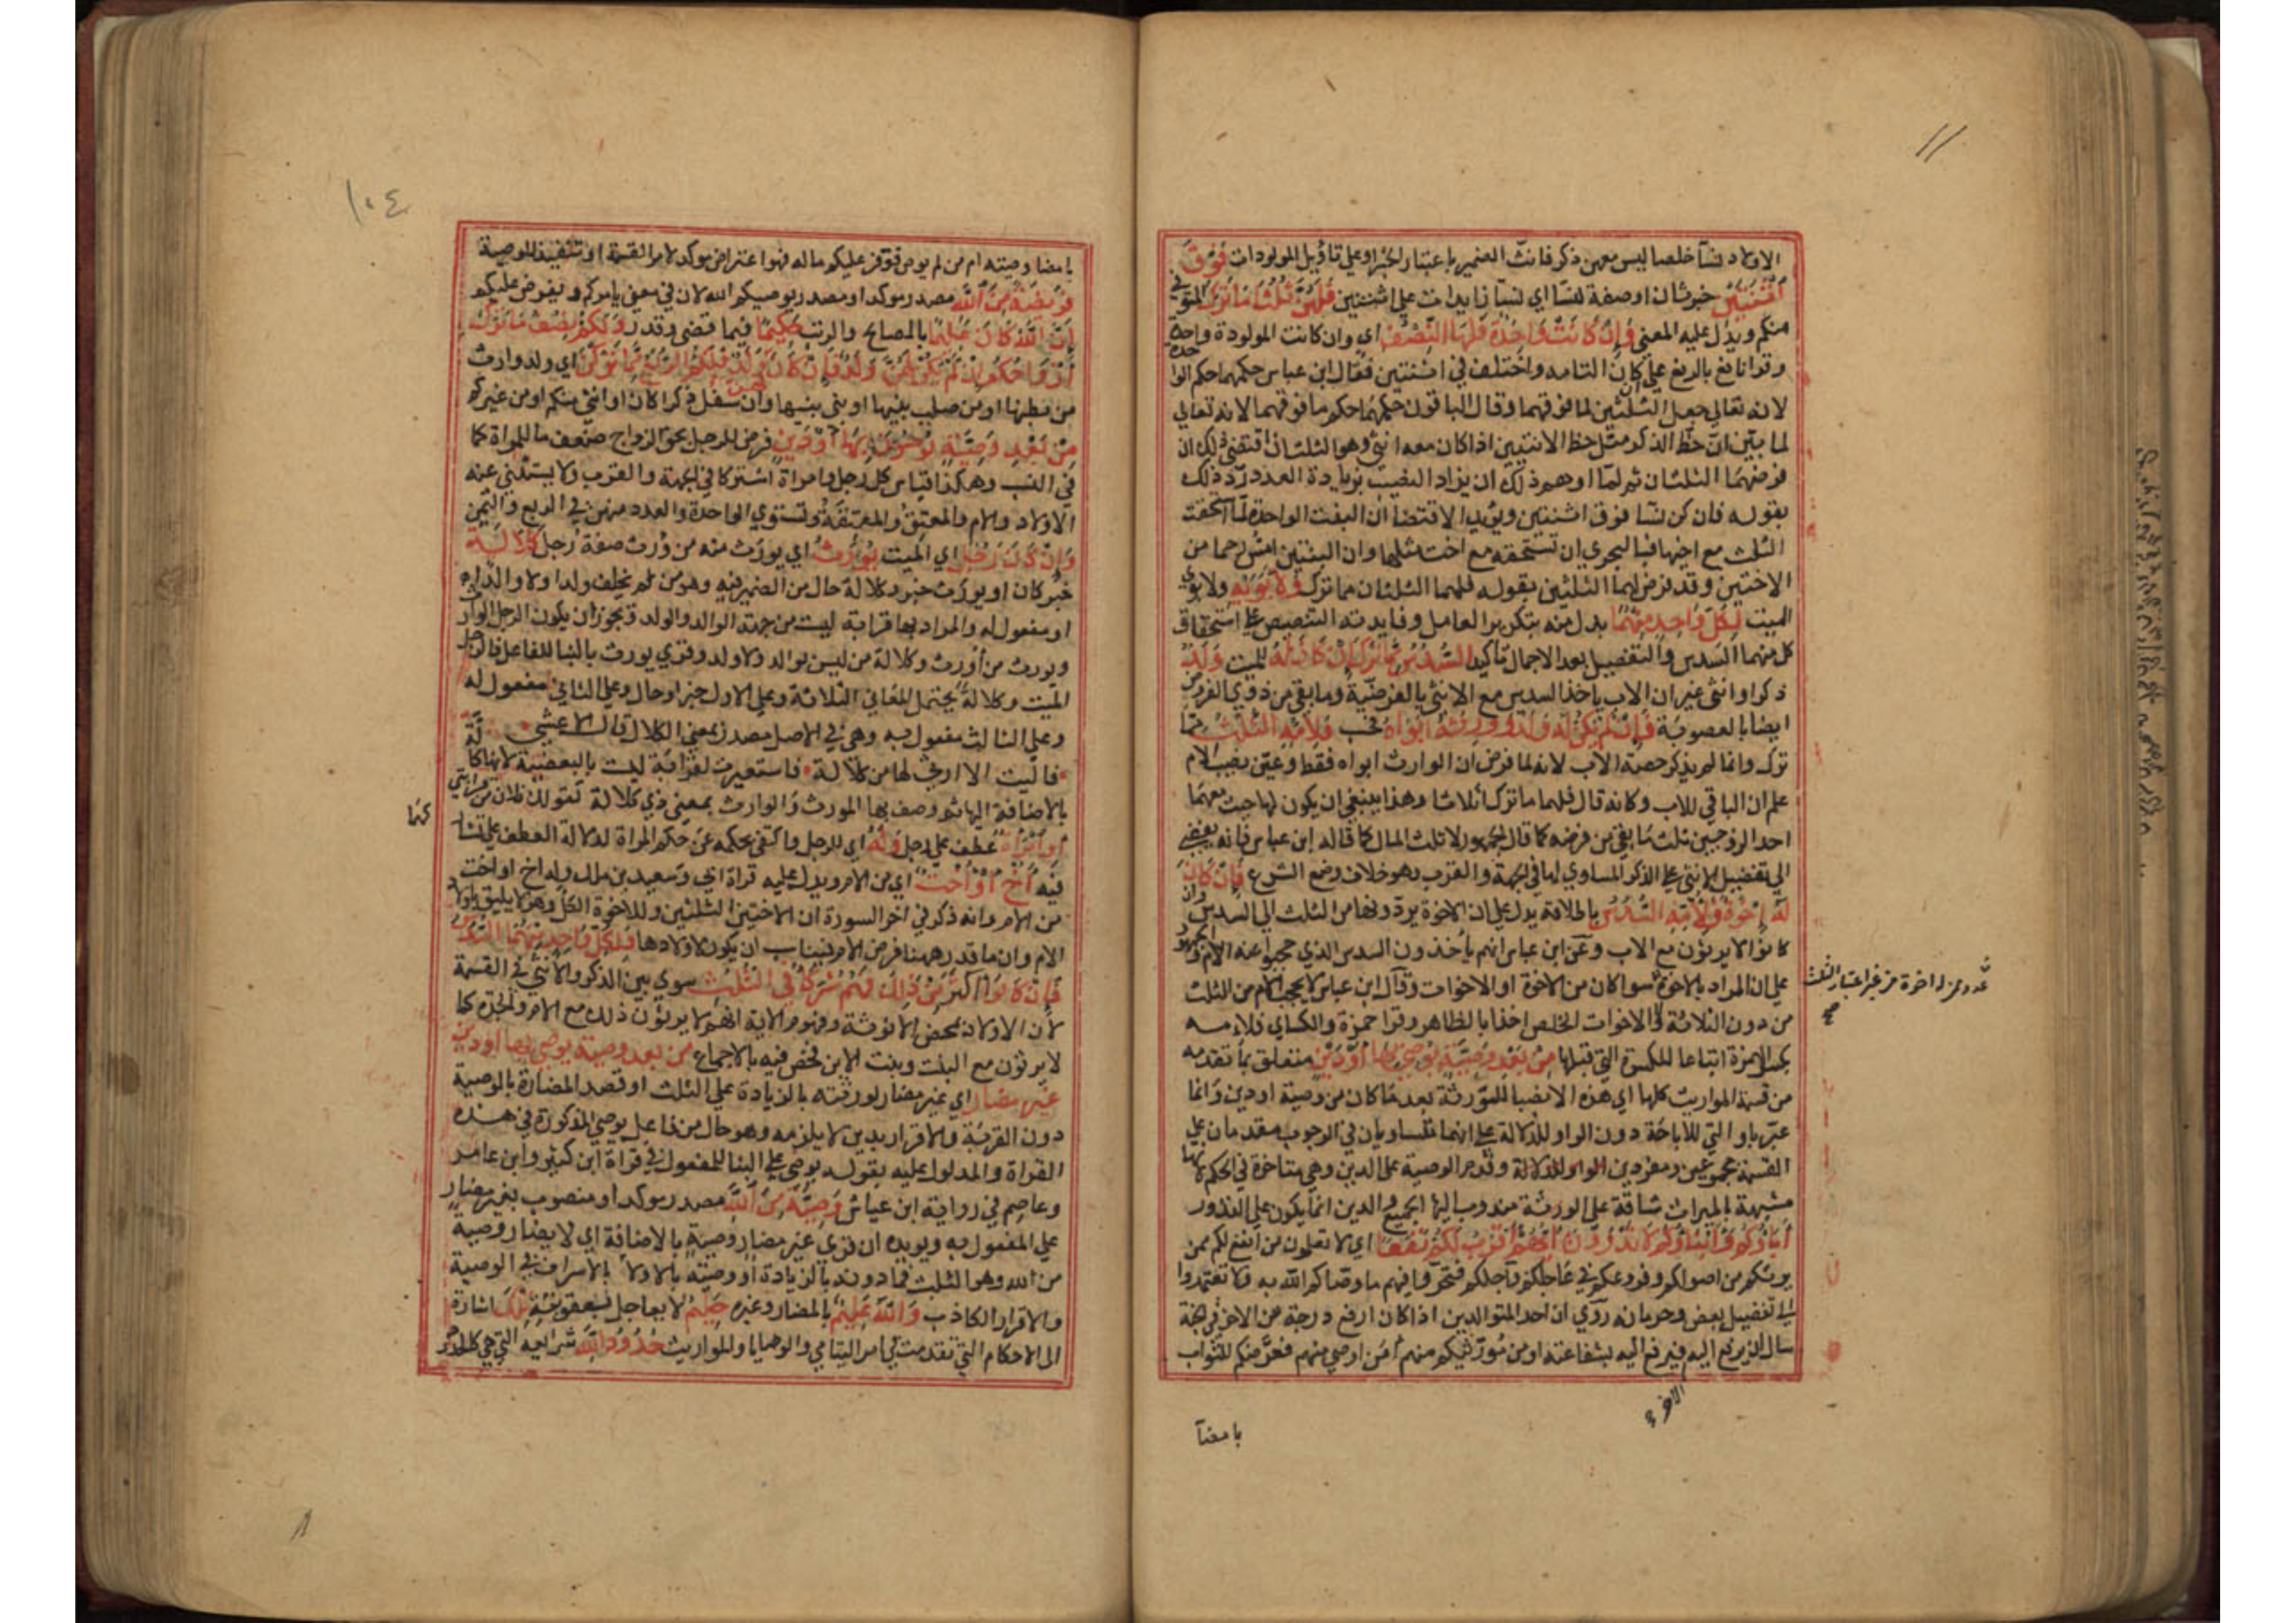 الاولاد نسآ خلصا ليس معهن ذكر فانث الضمير باعتبار الخبر او علي تاويل المولودات فَوْقَ
اثْنَتَيْنِ خبر ثان او صفة لنسا اي نسا زايدات علي اثنتين فَلَهُنَّ ثُلُثَا مَا تَرَكَ المتوفي
منكم ويدل عليه المعني وَإِنْ كَانَتْ وَاحِدَةً فَلَهَا النِّصْفُ اي وان كانت المولودة واحدة
وقرا نافع بالرفع علي كان التامه واختلف في اثنتين فقال ابن عباس حكمهما حكم الواحدة
لانه تعالي جعل الثلثين لما فوقهما وقال الباقون حكمهما حكم ما فوقهما لانه تعالي
لما بيّن ان حظ الذكر مثل حظ الانثيين اذا كان معه انثي وهو الثلثان اقتضي ذلك ان
فرضهما الثلثان ثم لما اوهم ذلك ان يزاد النصيب بزيادة العدد ردّ ذلك
بقوله فان كن نسا فوق اثنتين ويؤيد الاقتضا ان البنت الواحدة لما استحقت
الثلث مع اخيها فبالحري ان تستحقه مع اخت مثلها وان البنتين امس رحما من
الاختين وقد فرض لهما الثلثين بقوله فلهما الثلثان مما ترك وَلِأَبَوَيْهِ ولابوي
الميت لِكُلِّ وَاحِدٍ مِنْهُمَا بدل منه بتكرير العامل وفايدته التنصيص علي استحقاق
كل منهما السدس والتفصيل بعد الاجمال تاكيدا السُّدُسُ مِمَّا تَرَكَ إِنْ كَانَ لَهُ للميت وَلَدٌ
ذكرا او انثي غير ان الاب ياخذ السدس مع الانثي بالفرضيّة وما بقي من ذوي الفروض
ايضا بالعصوبة فَإِنْ لَمْ يَكُنْ لَهُ وَلَدٌ وَوَرِثَهُ أَبَوَاهُ فحسب فَلِأُمِّهِ الثُّلُثُ مما
ترك وانما لم يذكر حصة الاب لانه لما فرض ان الوارث ابواه فقط وعيّن نصيب الام
علم ان الباقي للاب وكانه قال فلهما ما ترك اثلاثا وهذا ينبغي ان يكون لها حيث معهما
احد الزوجين ثلث ما بقي من فرضه كما قال الجمهور لا ثلث المال كما قاله ابن عباس فانه يفضي
الي تفضيل الانثي علي الذكر المساوي لها في الجهة والقرب وهو خلاف وضع الشرع فَإِنْ كَانَ
لَهُ إِخْوَةٌ فَلِأُمِّهِ السُّدُسُ باطلاقه يدل علي ان الاخوة يردونها من الثلث الي السدس وان
كانوا لا يرثون مع الاب وعن ابن عباس انهم يأخذون السدس الذي حجبوا عنه الام والجمهور
علي ان المراد بالاخوة سوا كان من الاخوة او الاخوات وقال ابن عباس لا يحجب الام من الثلث
عدد ممن له اخوة من غير اعتبار الثلث
صح
من دون الثلاثة ولا الاخوات الخلص اخذا بالظاهر وقرا حمزة والكساي فلامه
بكسر الهمزة اتباعا للكسرة التي قبلها مِنْ بَعْدِ وَصِيَّةٍ يُوصِي بِهَا أَوْ دَيْنٍ متعلق بما تقدمه
من قسمة المواريث كلها اي هذه الانصبا للورثة بعد ما كان من وصية او دين وانما
عبّر باو التي للاباحة دون الواو للدلالة علي انهما متساويان في الوجوب مقدمان علي
القسمة مجموعين ومفردين وقدم الوصية علي الدين وهي متاخرة في الحكم لانها
مشبهة بالميراث شاقة علي الورثة مندوب اليها الجميع والدين انما يكون علي الندور
آبَاؤُكُمْ وَأَبْنَاؤُكُمْ لَا تَدْرُونَ أَيُّهُمْ أَقْرَبُ لَكُمْ نَفْعًا اي لا تعلمون من انفع لكم ممن
يرثكم من اصولكم وفروعكم في عاجلكم وآجلكم فتحروا فيهم ما وصاكم الله به ولا تعتمدوا
الي تفضيل بعض وحرمانه روي ان احد المتوالدين اذا كان ارفع درجة من الاخر في الجنة
سال ان يرفع اليه فيرفع اليه بشفاعته او من مورثيكم منهم امن اوصي منهم فعرّضكم للثواب
الاخر
بامضآ
١٠٤
بامضا وصيته ام من لم يوص فوفر عليكم ماله فهو اعتراض موكد لامر القسمة او تنفيذ الوصية
فَرِيضَةً مِنَ اللَّهِ مصدر موكد او مصدر يوصيكم الله لان في معني يامركم ويفرض عليكم
إِنَّ اللَّهَ كَانَ عَلِيمًا بالمصالح والرتب حَكِيمًا فيما قضي وقدر وَلَكُمْ نِصْفُ مَا تَرَكَ
أَزْوَاجُكُمْ إِنْ لَمْ يَكُنْ لَهُنَّ وَلَدٌ فَإِنْ كَانَ لَهُنَّ وَلَدٌ فَلَكُمُ الرُّبُعُ مِمَّا تَرَكْنَ اي ولد وارث
من بطنها او من صلب بنيها او بني بنيها وان سفل ذكرا كان او انثي منكم او من غيركم
مِنْ بَعْدِ وَصِيَّةٍ يُوصِينَ بِهَا أَوْ دَيْنٍ فرض للرجل بحق الزواج ضعف ما للمراة كما
في النسب وهكذا قياس كل رجل وامراة اشتركا في الجهة والقرب ولا يستثني عنه
الاولاد والام والمعتق والمعتقة وتستوي الواحدة والعدد منهن في الربع والثمن
وَإِنْ كَانَ رَجُلٌ اي الميت يُورَثُ اي يورث منه من وُرث صفة رجل كَلَالَةً
خبر كان او يورث خبر وكلالة حال من الضمير فيه وهو من لم يخلف ولدا ولا والدا
او مفعول له والمراد بها قرابة ليست من جهة الوالد والولد ويجوز ان يكون الرجل الوارث
ويورث من أورث وكلالة من ليس بوالد ولا ولد وقري يورث بالبنا للفاعل فالرجل
الميت وكلالة يحتمل المعاني الثلاثة وعلي الاول خبر او حال وعلي الثاني مفعول له
وعلي الثالث مفعول به وهي في الاصل مصدر بمعني الكلال قال الاعشي
فآليت لا ارثي لها من كلالة فاستعيرت لقرابة ليست بالبعضية لانها كالّة
بالاضافة اليها ثم وصف بها المورث والوارث بمعني ذي كلالة كقولك فلان من قرابتي
أَوِ امْرَأَةٌ عطف علي رجل وَلَهُ اي للرجل واكتفي بحكمه عن حكم المراة لدلالة العطف علي تشاركهما
أَخٌ أَوْ أُخْتٌ اي من الام ويدل عليه قراة ابي وسعيد بن مالك وله اخ او اخت
من الام وانه ذكر في اخر السورة ان للاختين الثلثين وللاخوة الكل وهو لا يليق باولاد
الام وان ما قدر ههنا فرض الام فيناسب ان يكون لاولادها فَلِكُلِّ وَاحِدٍ مِنْهُمَا السُّدُسُ
فَإِنْ كَانُوا أَكْثَرَ مِنْ ذَلِكَ فَهُمْ شُرَكَاءُ فِي الثُّلُثِ سوي بين الذكر والانثي في القسمة
لان الادلاء بمحض الانوثة ومفهوم الاية انهم لا يرثون ذلك مع الام والجدة كما
لا يرثون مع البنت وبنت الابن فخص فيه بالاجماع مِنْ بَعْدِ وَصِيَّةٍ يُوصَى بِهَا أَوْ دَيْنٍ
غَيْرَ مُضَارٍّ اي غير مضار لورثته بالزيادة علي الثلث او قصد المضارة بالوصية
دون القربة والاقرار بدين لا يلزمه وهو حال من فاعل يوصي المذكورة في هذه
القراة والمدلول عليه بقوله يوصي علي البنا للمفعول في قراة ابن كثير وابن عامر
وعاصم في رواية ابن عياش وَصِيَّةً مِنَ اللَّهِ مصدر موكد او منصوب بغير مضار
علي المفعول به ويويده ان قري غير مضار وصيةٍ بالاضافة اي لا يضار وصية
من الله وهو الثلث فما دونه بالزيادة او وصيته بالاولاد بالاسراف في الوصية
والاقرار الكاذب وَاللَّهُ عَلِيمٌ بالمضار وغيره حَلِيمٌ لا يعاجل بعقوبته تِلْكَ اشارة
الي الاحكام التي تقدمت في امر اليتامي والوصايا والمواريث حُدُودُ اللَّهِ شرايعه التي هي كالحدود